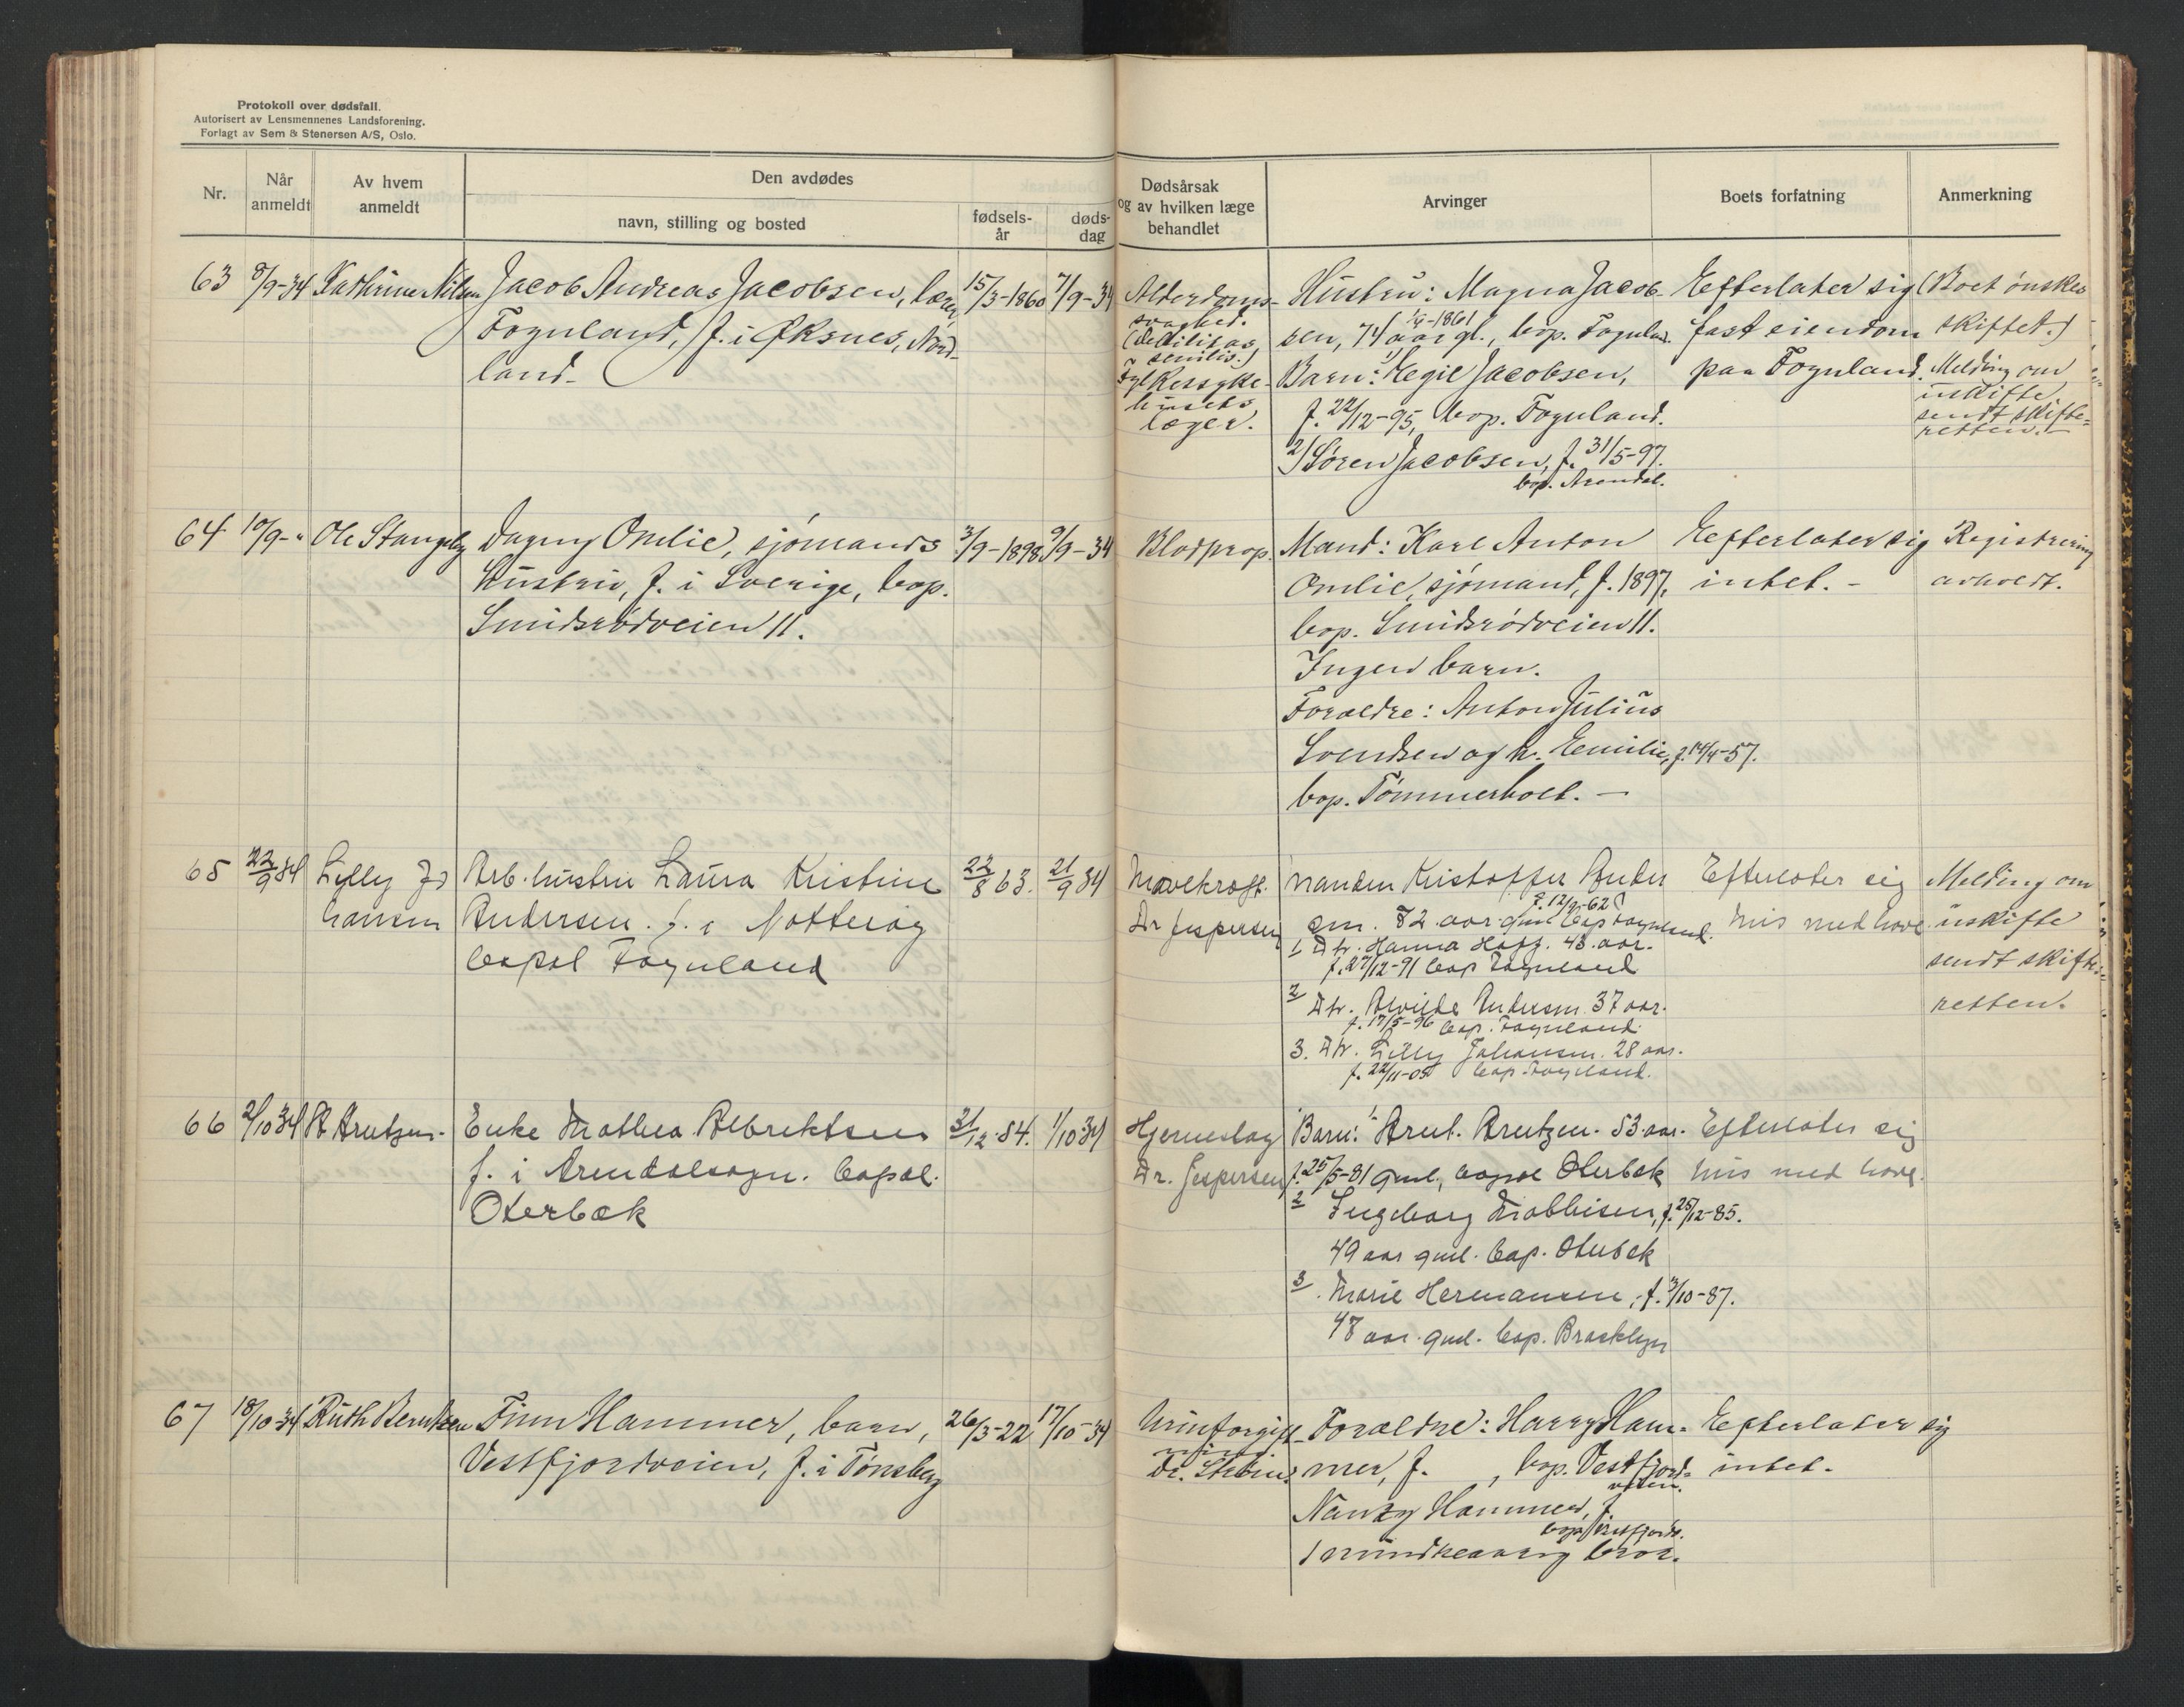 Protokoll over dødsfall.
Autorisert av Lensmennenes Landsforening.
Forlagt av Sem & Stenersen A/S, Oslo.
Nr.
Når anmeldt
Av hvem anmeldt
Den avdødes
navn, stilling og bosted
fødsels-år
døds-dag
Dødsårsak
og av hvilken læge
behandlet
Arvinger
Boets forfatning
Anmerkning
63
8/9-34
Kathrine Nilsen
Jacob Andreas Jacobsen,
Fognland, f. i Øksnes, Nord-
land.
15/3-1860
7/9-34
Alderdoms-
svaghed.
(debilitas
senilis.)
Fylkessyke-
husets
læger.
Hustru: Magna Jacob-
1/4-1861
sen, 74 aar gl., bop. Fognland.
Barn: 1) Hegil Jacobsen,
f. 22/12-95, bop. Fognland.
2) Søren Jacobsen, f. 31/5-97.
bop. Arendal.
Efterlater sig
fast eiendom
paa Fognland.
(Boet ønskes
skiftet.)
Melding om
uskifte
sendt skifte-
retten.-
64
10/9-"
Ole Stangeby
Dagny Omlie, sjømands
hustru, f. i Sverige, bop.
Smidsrødveien 11.
3/9-1898
9/9-34
Blodprop.
Mand: Karl Anton
Omlie, sjømand, f. 1897,
bop. Smidsrødveien 11.
Ingen barn.
Forældre: Anton Julius
Svendsen og h. Emilie, f. 14/4-57.
bop. Tømmerholt. -
Efterlater sig
intet. -
Registrering
avholdt.
65
22/9 34
Lilly Jo
hansen
Arb. hustru Laura Kristine
Andersen. f. i Nøtterøy
bopæl Fognland
22/8 63.
21/9 34
Mavekræft.
Dr Jespersen
Manden Kristoffer Ander
f. 12/9-62
sen. 72 aar gml bop Fognland.
1 Dtr. Hanna Hoff. 43 aar.
f. 27/12-91 bop Fognland
2 Dtr. Alvilde Andersen 37 aar.
f. 17/5-96 bop. Fognland.
3. Dtr. Lilly Johansen. 28 aar.
f. 22/11-05 bop. Fognland.
Efterlater sig
hus med have.
Melding om
uskifte
sendt skifte-
retten.
66
2/10 34
A Arntzen.
Enke Mathea Albrektsen
f. i Arendalsogn. bopæl.
Oterbæk
1/10-34
Hjerneslag
Dr. Jespersen
Barn: 1 Arnt. Arntzen. 53 aar.
f. 25/5-81 gml., bopæl Oterbæk
2 Ingeborg Mathisen, f. 25/12-85.
49 aar gml. bop. Oterbæk
3. Marie Hermansen, f. 3/10-87.
47 aar. gml. bop. Brooklyn
Efterlater sig
hus med have.
67
18/10-34
Ruth Berntzen
Finn Hammer, barn,
Vestfjordveien, f. i Tønsberg
26/3-22
17/10-34
Urinforgift-
ning.
Forældre: Harry Ham-
mer, f. , bop. Vestfjord-
veien.
Nanzy Hammer, f
bop. Vestfjordv.
1 mindreaarig bror.
Efterlater sig
intet.